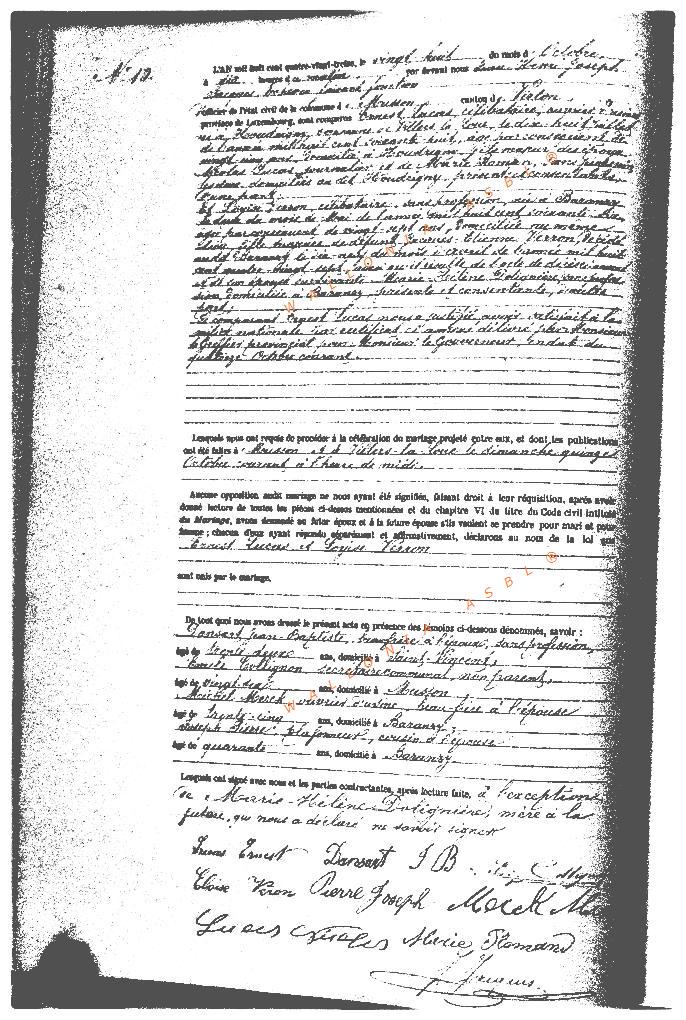 N° 19.
L'AN mil huit cent quatre-vingt-treize, le vingt huit du mois d'Octobre,
à dix heures du matin, par devant nous Henri Joseph
officier de l'état civil de la commune de Musson canton de Virton,
province de Luxembourg, sont comparus Ernest Lucas, célibataire, ouvrier d'usine
né à Houdrigny, commune de Villers la Loue, le dix huit
de l'année mil huit cent soixante huit, âgé par conséquent de
vingt cinq ans, domicilié à Houdrigny, fils majeur des époux
Nicolas Lucas, journalier et de Marie Roman, sans profession,
les deux domiciliés au dit Houdrigny, présents et consentants,
d'une part.
Et Loyise Verron célibataire, sans profession, née à Baranzy
le du mois de Mai de l'année mil huit cent soixante six,
âgée par conséquent de vingt-sept ans, domiciliée au même
lieu, fille majeure de défunt Jacques-Etienne Verron, décédé
audit Baranzy le dix neuf du mois d'avril de l'année mil huit
cent quatre-vingt-sept, ainsi qu'il résulte de l'acte de décès
et de son épouse survivante Marie-Hélène Dolignière, sans profes-
sion, domiciliée à Baranzy, présente et consentante, d'autre
part.
Le comparant Ernest Lucas nous a justifié avoir satisfait à la
milice nationale par certificat ci annexé délivré par Monsieur
le Greffier provincial pour Monsieur le Gouverneur, en date du
quatorze Octobre courant.
Lesquels nous ont requis de procéder à la célébration du mariage projeté entre eux, et dont les publications
ont été faites à Musson et à Villers-la-Loue le dimanche quinze
Octobre courant à l'heure de midi.
Aucune opposition audit mariage ne nous ayant été signifiée, faisant droit à leur réquisition, après avoir
donné lecture de toutes les pièces ci-dessus mentionnées et du chapitre VI du titre du Code civil intitulé
du Mariage, avons demandé au futur époux et à la future épouse s'ils veulent se prendre pour mari et pour
femme ; chacun d'eux ayant répondu séparément et affirmativement, déclarons au nom de la loi que
Ernest Lucas et Loyise Verron
sont unis par le mariage.
De tout quoi nous avons dressé le présent acte en présence des témoins ci-dessous dénommés, savoir :
Dansart, Jean-Baptiste, beau-frère à l'époux, sans profession,
âgé de trente deux ans, domicilié à Saint-Vincent,
Emile Collignon secrétaire communal, non parent,
âgé de vingt six ans, domicilié à Musson,
Michel Merck ouvrier d'usine, beau-frère à l'épouse
âgé de trente-cinq ans, domicilié à Baranzy,
Joseph Pierre plafonneur, cousin à l'épouse
âgé de quarante ans, domicilié à Baranzy.
Lesquels ont signé avec nous et les parties contractantes, après lecture faite, à l'exception
de Marie-Hélène Dolignière, mère à la
future, qui nous a déclaré ne savoir signer
Lucas Ernest Dansart J B
Eloise Veron Pierre Joseph Merck
Lucas Nicolas Marie Romand
WALLONIA ASBL ®
WALLONIA ASBL ®